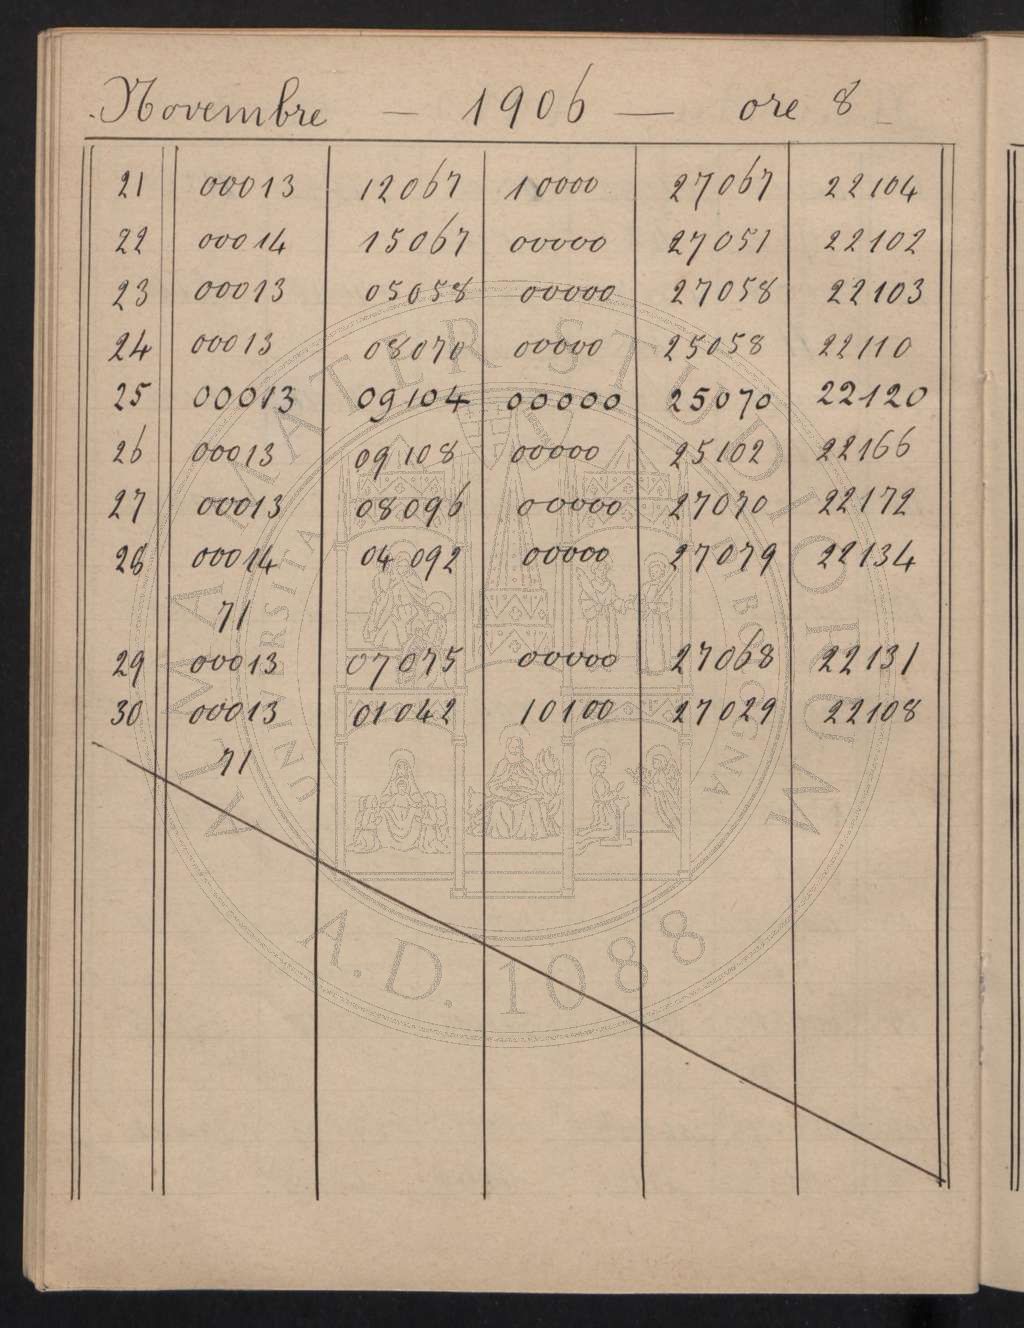 Novembre — 1906 — ore 8
21 00013 12067 10000 27067 22104
22 00014 15067 00000 27051 22102
23 00013 05058 00000 27058 22103
24 00013 08070 00000 25058 22110
25 00013 09104 00000 25070 22120
26 00013 09108 00000 25102 22166
27 00013 08096 00000 27070 22172
28 00014 04092 00000 27079 22134
71
29 00013 07075 00000 27068 22131
30 00013 01042 10100 27029 22108
71
ALMA MATER STUDIORUM
A.D. 1088